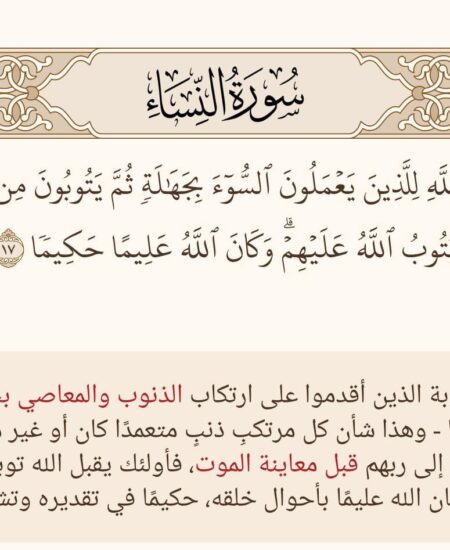 سُورَةُ النِّسَاءِ
لَّهِ لِلَّذِينَ يَعْمَلُونَ ٱلسُّوٓءَ بِجَهَٰلَةٖ ثُمَّ يَتُوبُونَ مِن
تُوبُ ٱللَّهُ عَلَيۡهِمۡۗ وَكَانَ ٱللَّهُ عَلِيمًا حَكِيمٗا ١٧
بة الذين أقدموا على ارتكاب الذنوب والمعاصي
- وهذا شأن كل مرتكبِ ذنبٍ متعمدًا كان أو غير
إلى ربهم قبل معاينة الموت، فأولئك يقبل الله
ان الله عليمًا بأحوال خلقه، حكيمًا في تقديره